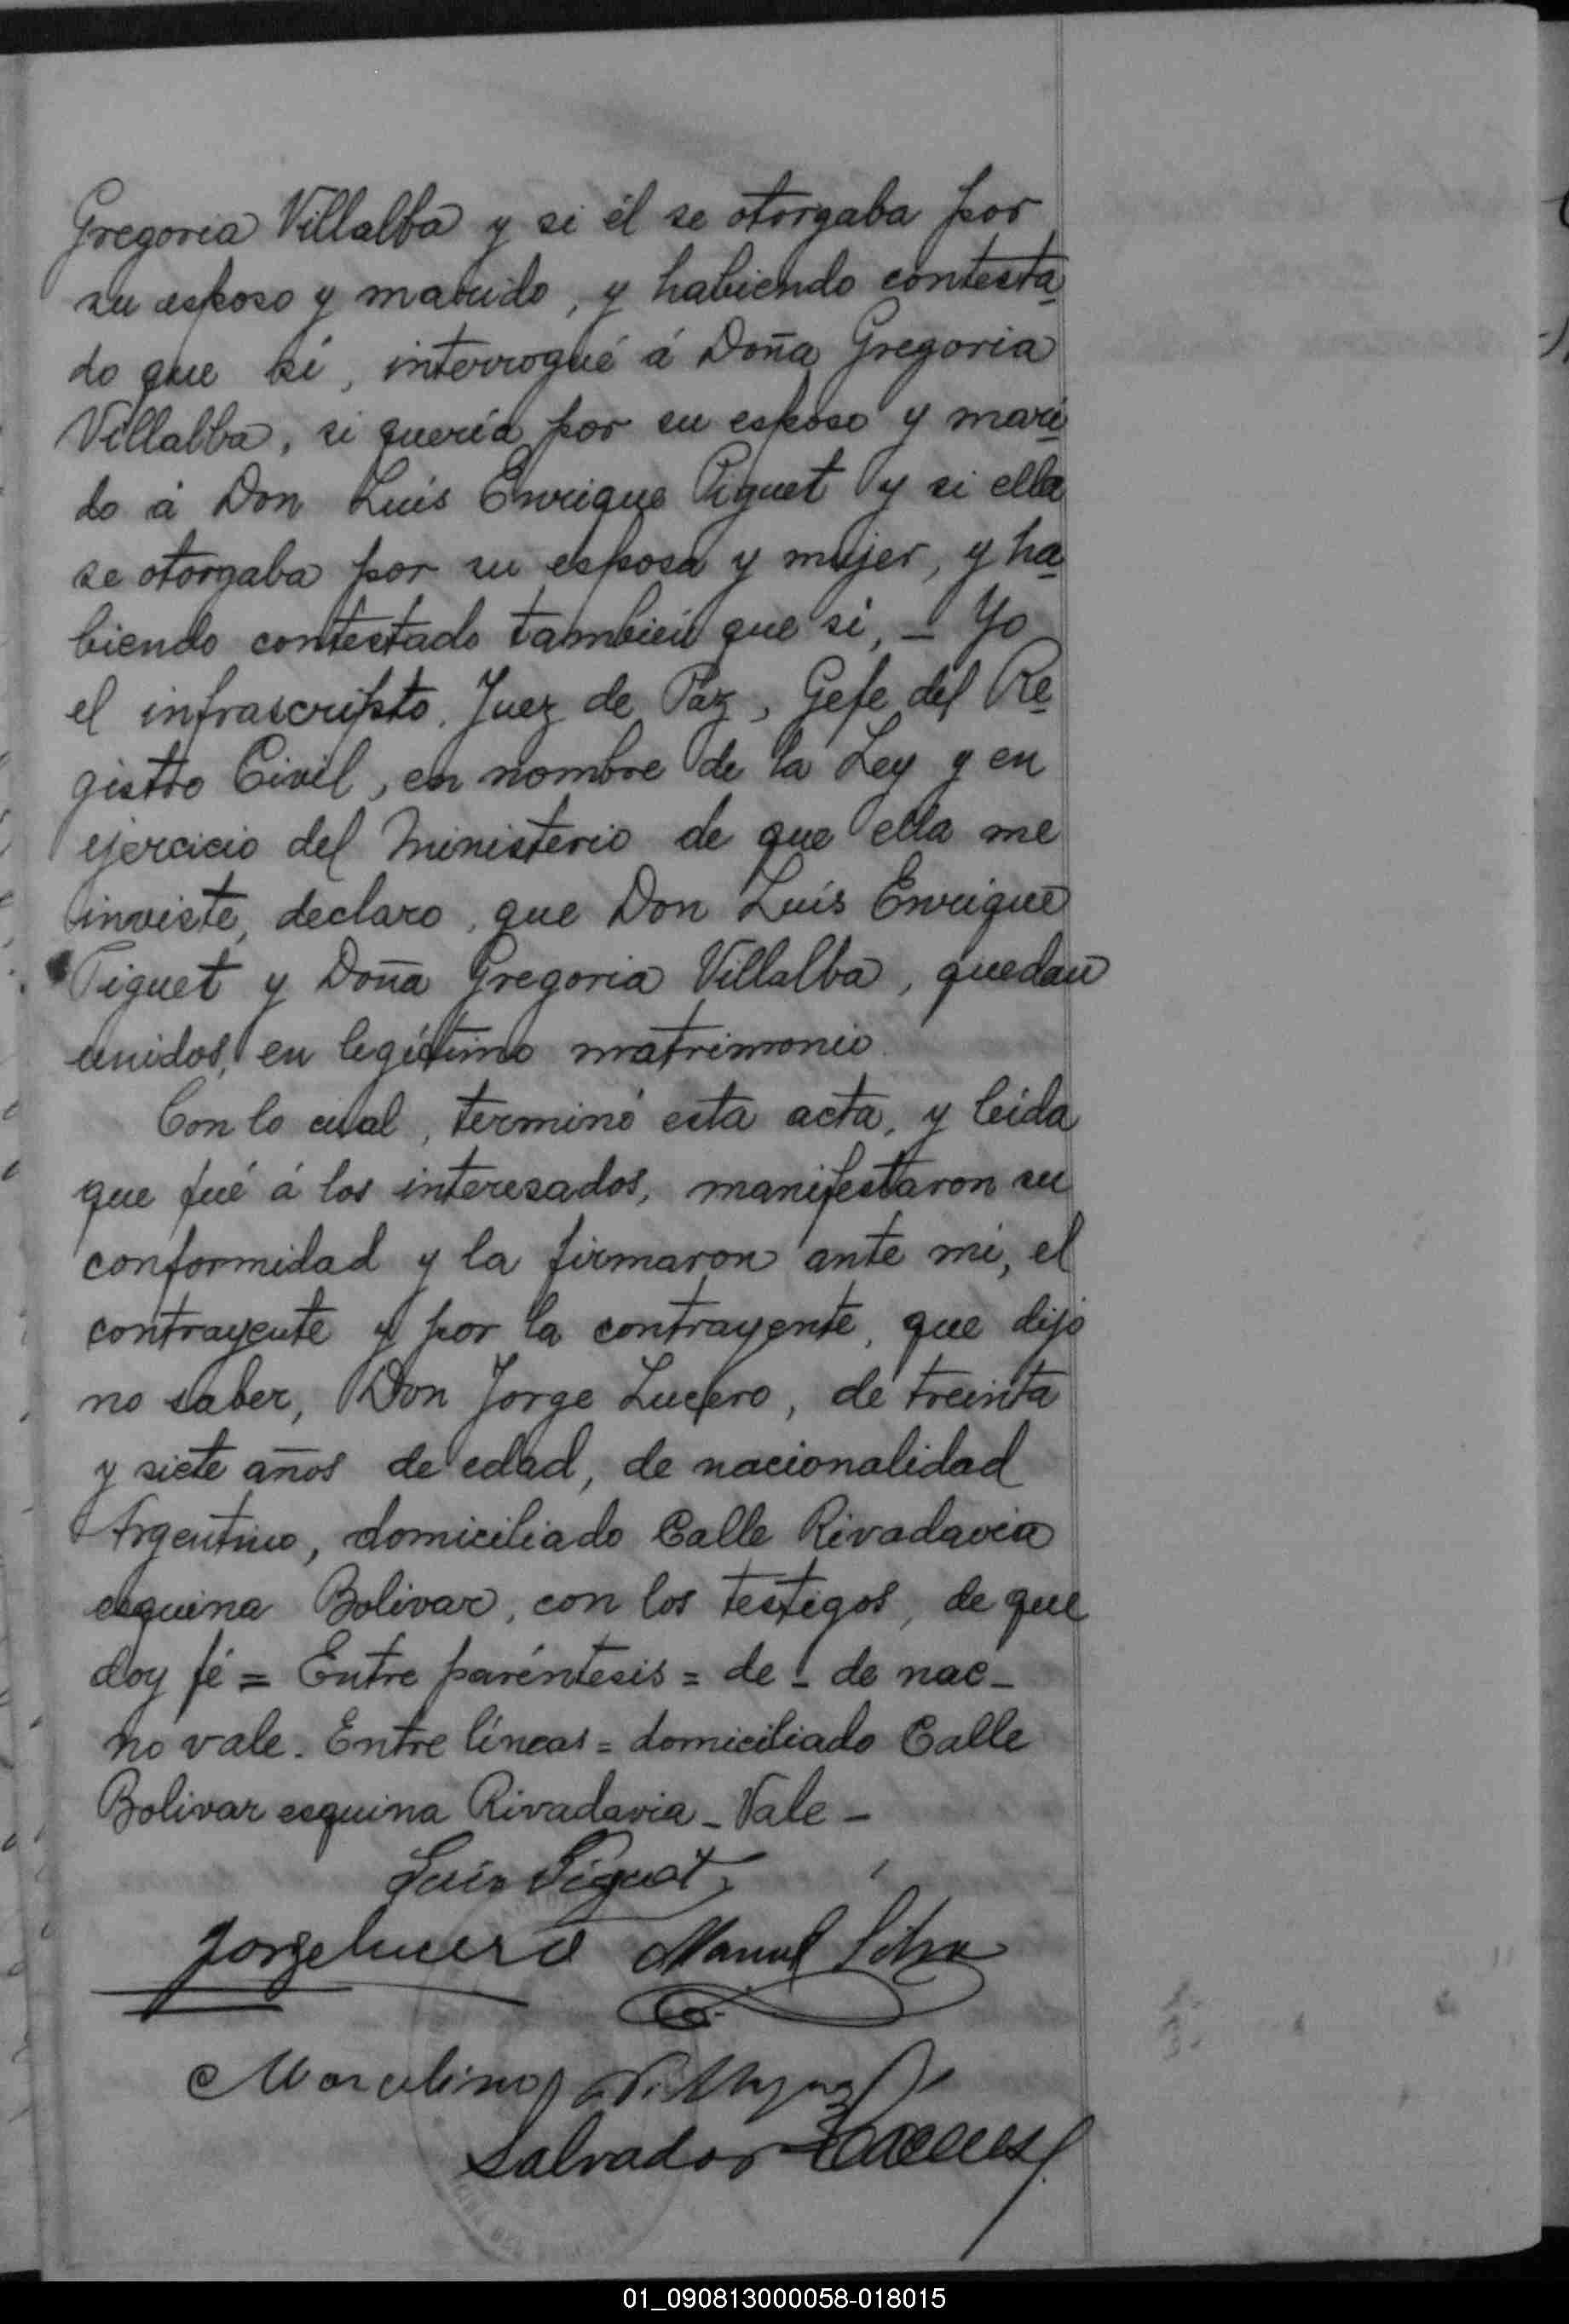 Gregoria Villalba y si él se otorgaba por
su esposo y marido, y habiendo contesta
do que sí, interrogué á Doña Gregoria
Villalba, si quería por su esposo y mari
do á Don Luís Enrique Piguet y si ella
se otorgaba por su esposa y mujer, y ha
biendo contestado también que sí, _ Yo
el infrascripto, Juez de Paz, Gefe del Re
gistro Civil, en nombre de la Ley y en
ejercicio del Ministerio de que ella me
inviste, declaro, que Don Luís Enrique
Piguet y Doña Gregoria Villalba, quedan
unidos, en legítimo matrimonio.
Con lo cual, terminó esta acta, y leida
que fué á los interesados, manifestaron su
conformidad y la firmaron ante mi, el
contrayente y por la contrayente, que dijo
no saber, Don Jorge Lucero, de treinta
y siete años de edad, de nacionalidad
Argentino, domiciliado Calle Rivadavia
esquina Bolivar, con los testigos, de que
doy fé = Entre paréntesis = de - de nac _
no vale. Entre líneas = domiciliado Calle
Bolivar esquina Rivadavia _ Vale _
Luis Piguet
Jorge Lucero Manuel Silva
Marcelino
Salvador
01_090813000058-018015